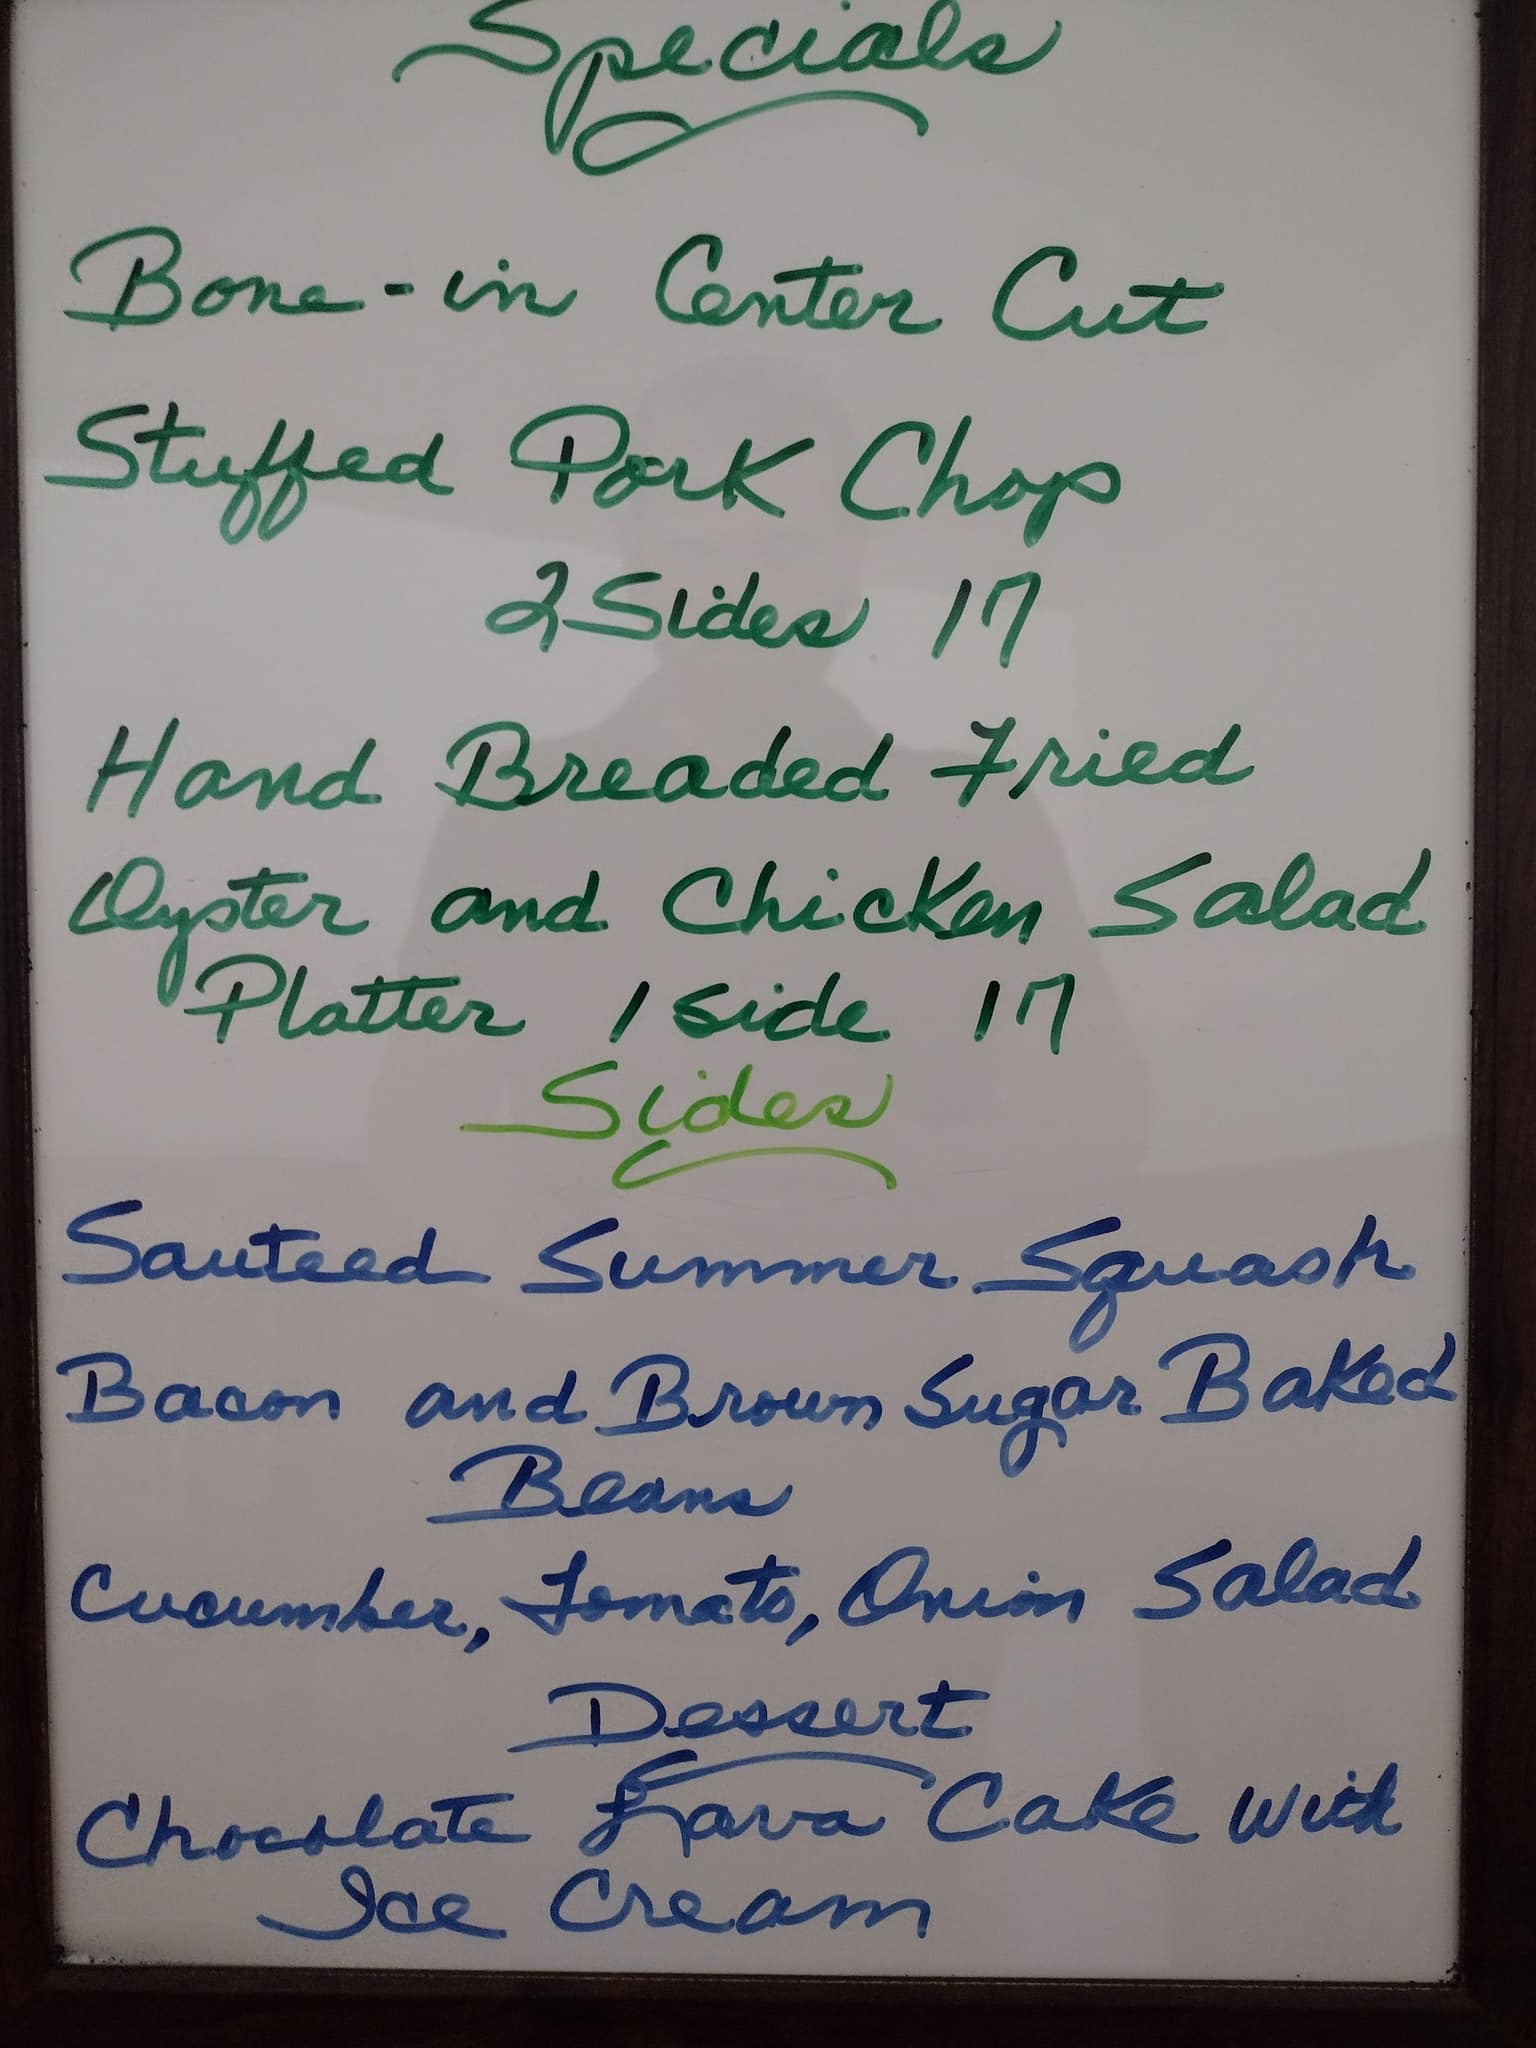 Specials
Bone-in Center Cut
Stuffed Pork Chop
2 Sides 17
Hand Breaded Fried
Oyster and Chicken Salad
Platter 1 side 17
Sides
Sauteed Summer Squash
Bacon and Brown Sugar Baked
Beans
Cucumber, Tomato, Onion Salad
Dessert
Chocolate Lava Cake with
Ice Cream